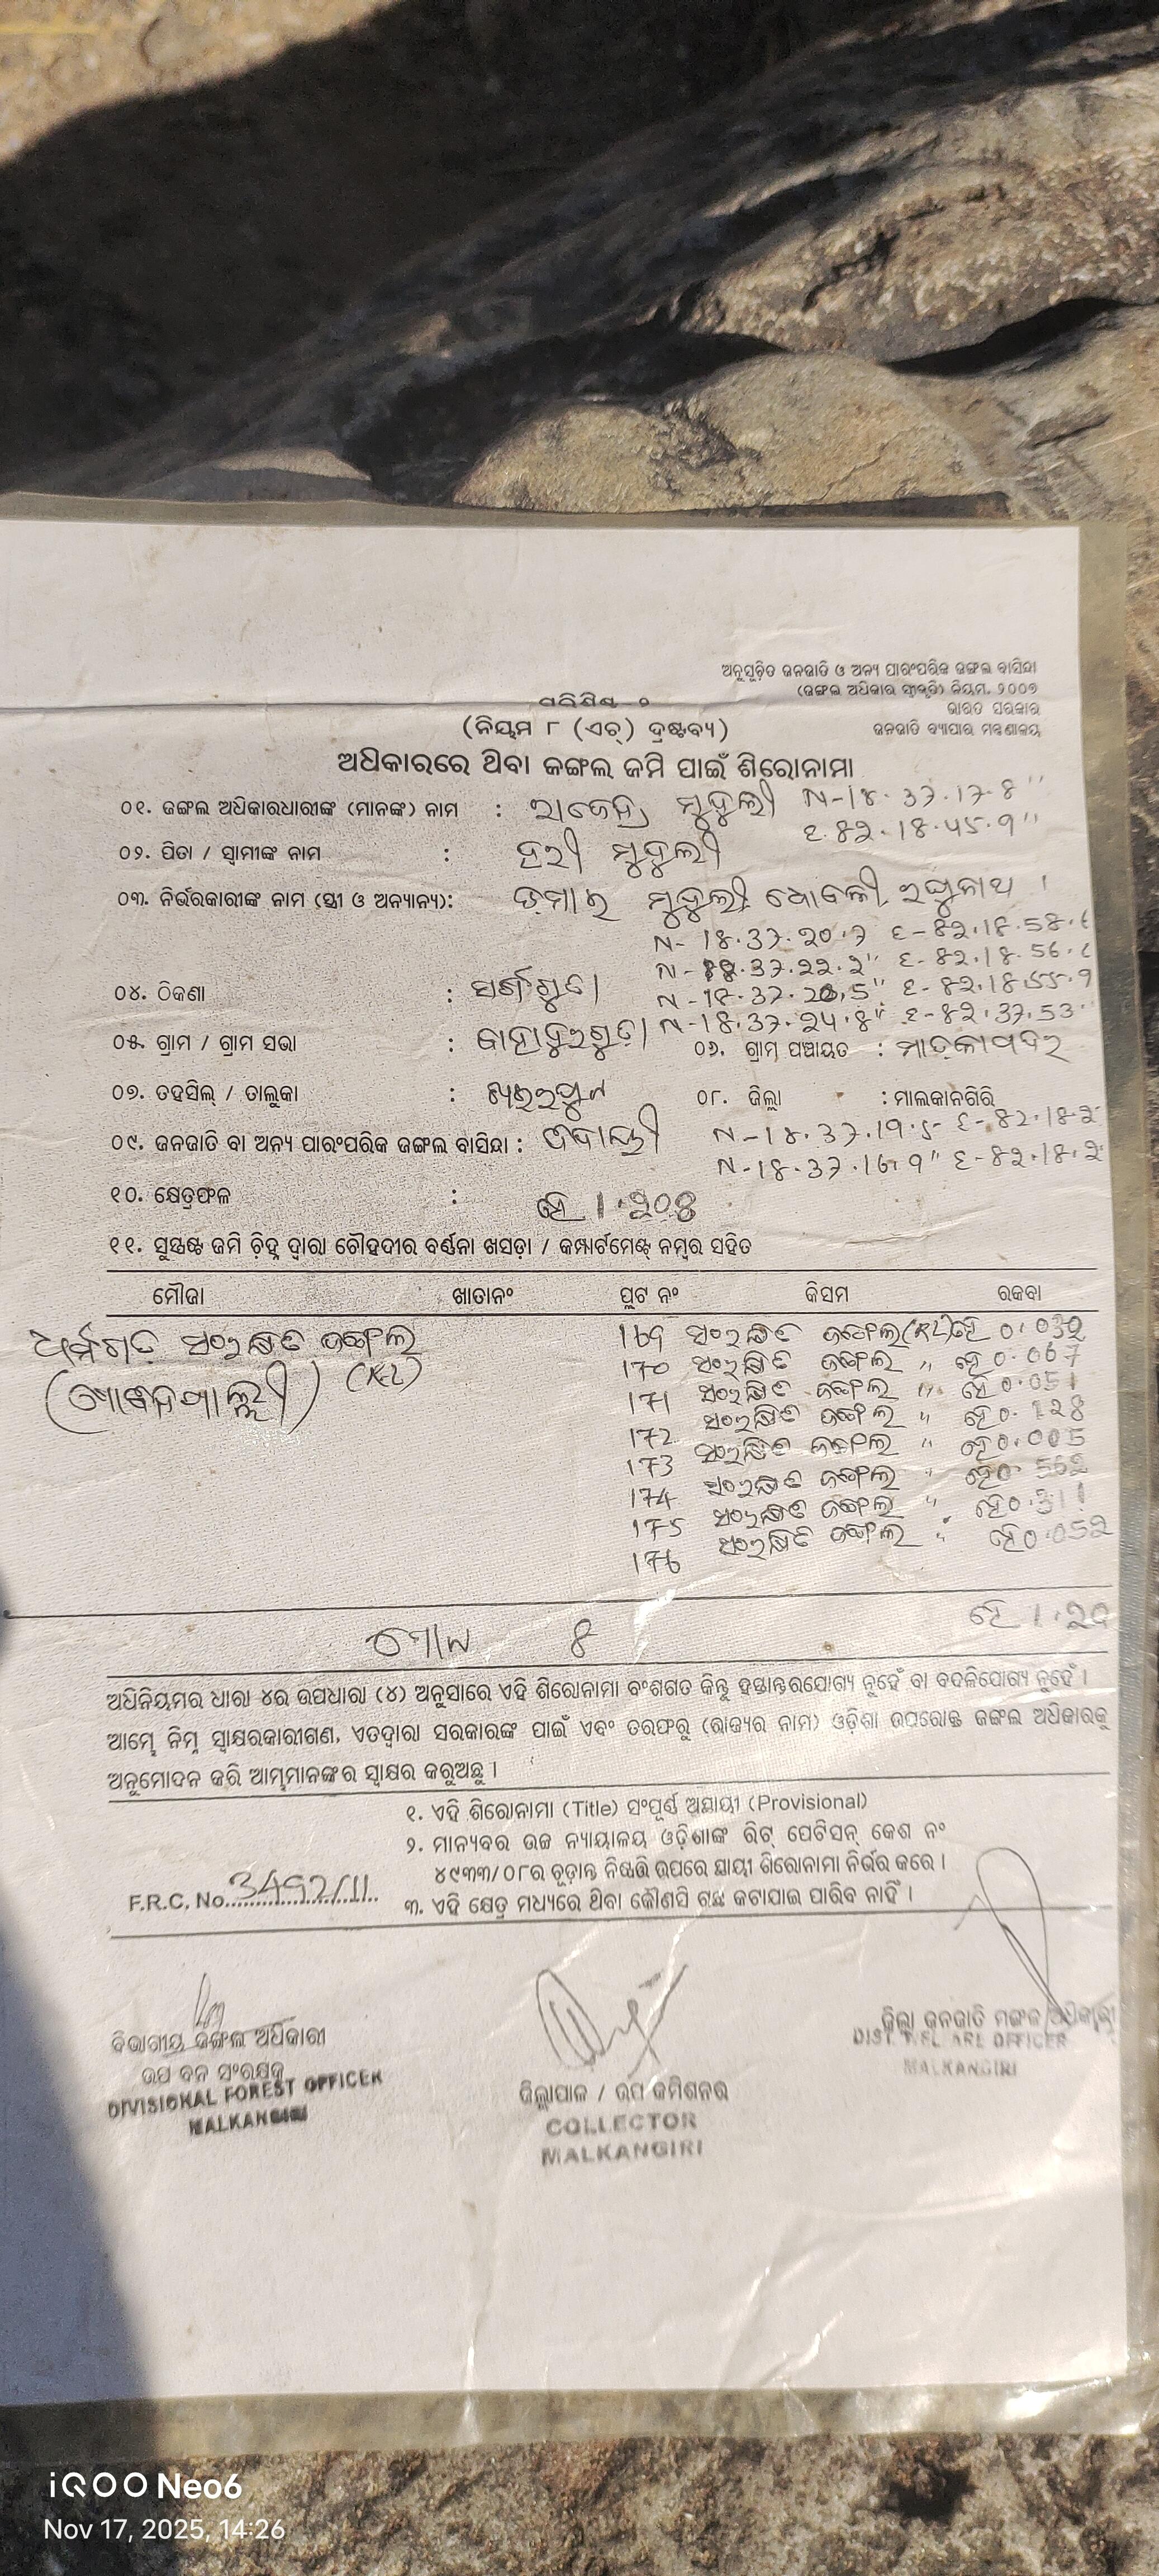 ଅନୁସୂଚିତ ଜନଜାତି ଓ ଅନ୍ୟ ପାରଂପରିକ ଜଙ୍ଗଲ ବାସିନ୍ଦା
(ଜଙ୍ଗଲ ଅଧିକାର ସ୍ୱୀକୃତି) ନିୟମ, ୨୦୦୭
ଭାରତ ସରକାର
ଜନଜାତି ବ୍ୟାପାର ମନ୍ତ୍ରଣାଳୟ
(ନିୟମ ୮ (ଏଚ୍) ଦ୍ରଷ୍ଟବ୍ୟ)
ଅଧିକାରରେ ଥିବା ଜଙ୍ଗଲ ଜମି ପାଇଁ ଶିରୋନାମା
୦୧. ଜଙ୍ଗଲ ଅଧିକାରଧାରୀଙ୍କ (ମାନଙ୍କ) ନାମ : ରାଜେନ୍ଦ୍ର ମୁଦୁଲୀ N-18.37.17.8''
E.82.18.45.9''
୦୨. ପିତା / ସ୍ୱାମୀଙ୍କ ନାମ : ହରୀ ମୁଦୁଲୀ
୦୩. ନିର୍ଭରକାରୀଙ୍କ ନାମ (ସ୍ତ୍ରୀ ଓ ଅନ୍ୟାନ୍ୟ): ଡ଼ମାଇ ମୁଦୁଲୀ, ଧୋବଳୀ, ରଘୁନାଥ ।
N-18.37.20.7 E-82.18.58.
N- 37.22.2'' E-82.18.56.
N-18.37. .5'' E-82.18.55.9
୦୪. ଠିକଣା :
N-18.37.24.8'' E-82.37.53
୦୫. ଗ୍ରାମ / ଗ୍ରାମ ସଭା : ବାହାଦୁରଗୁଡ଼ା ୦୬. ଗ୍ରାମ ପଞ୍ଚାୟତ : ମାଡ଼କାପଦର
୦୭. ତହସିଲ୍ / ତାଲୁକା : ଖଇରପୁଟ ୦୮. ଜିଲ୍ଲା : ମାଲକାନଗିରି
୦୯. ଜନଜାତି ବା ଅନ୍ୟ ପାରଂପରିକ ଜଙ୍ଗଲ ବାସିନ୍ଦା : N-18.37.19.5- E-82.18.
N-18.37.16.9'' E-82.18.
୧୦. କ୍ଷେତ୍ରଫଳ : ହେ 1.୨୦୫
୧୧. ସୁସ୍ପଷ୍ଟ ଜମି ଚିହ୍ନ ଦ୍ୱାରା ଚୌହଦୀର ବର୍ଣ୍ଣନା ଖସଡ଼ା / କମ୍ପାର୍ଟମେଣ୍ଟ୍ ନମ୍ବର ସହିତ
ମୌଜା ଖାତାନଂ ପ୍ଲଟ ନଂ କିସମ ରକବା
ସଂରକ୍ଷିତ ଜଙ୍ଗଲ 169 ସଂରକ୍ଷିତ ଜଙ୍ଗଲ ହେ 0.03୨
170 ସଂରକ୍ଷିତ ଜଙ୍ଗଲ '' ହେ 0.067
171 ସଂରକ୍ଷିତ ଜଙ୍ଗଲ '' ହେ 0.051
172 ସଂରକ୍ଷିତ ଜଙ୍ଗଲ '' ହେ 0.
173 ସଂରକ୍ଷିତ ଜଙ୍ଗଲ '' ହେ 0.005
174 ସଂରକ୍ଷିତ ଜଙ୍ଗଲ '' ହେ 0.56୨
175 ସଂରକ୍ଷିତ ଜଙ୍ଗଲ '' ହେ 0.311
176 ସଂରକ୍ଷିତ ଜଙ୍ଗଲ '' ହେ 0.05୨
ହେ 1.୨୦
ଅଧିନିୟମର ଧାରା ୪ର ଉପଧାରା (୪) ଅନୁସାରେ ଏହି ଶିରୋନାମା ବଂଶଗତ କିନ୍ତୁ ହସ୍ତାନ୍ତରଯୋଗ୍ୟ ନୁହେଁ ବା ବଦଳିଯୋଗ୍ୟ ନୁହେଁ ।
ଆମ୍ଭେ ନିମ୍ନ ସ୍ୱାକ୍ଷରକାରୀଗଣ, ଏତଦ୍ୱାରା ସରକାରଙ୍କ ପାଇଁ ଏବଂ ତରଫରୁ (ରାଜ୍ୟର ନାମ) ଓଡ଼ିଶା ଉପରୋକ୍ତ ଜଙ୍ଗଲ ଅଧିକାରକୁ
ଅନୁମୋଦନ କରି ଆମ୍ଭମାନଙ୍କର ସ୍ୱାକ୍ଷର କରୁଅଛୁ ।
୧. ଏହି ଶିରୋନାମା (Title) ସଂପୂର୍ଣ୍ଣ ଅସ୍ଥାୟୀ (Provisional)
୨. ମାନ୍ୟବର ଉଚ୍ଚ ନ୍ୟାୟାଳୟ ଓଡ଼ିଶାଙ୍କ ରିଟ୍ ପେଟିସନ୍ କେଶ ନଂ
୪୯୩୩/୦୮ର ଚୂଡ଼ାନ୍ତ ନିଷ୍ପତ୍ତି ଉପରେ ସ୍ଥାୟୀ ଶିରୋନାମା ନିର୍ଭର କରେ ।
F.R.C. No. 3492/11 ୩. ଏହି କ୍ଷେତ୍ର ମଧ୍ୟରେ ଥିବା କୌଣସି ଗଛ କଟାଯାଇ ପାରିବ ନାହିଁ ।
ବିଭାଗୀୟ ଜଙ୍ଗଲ ଅଧିକାରୀ
ଉପ ବନ ସଂରକ୍ଷକ
DIVISIONAL FOREST OFFICER
MALKANGIRI
ଜିଲ୍ଲାପାଳ / ଉପ କମିଶନର
COLLECTOR
MALKANGIRI
ଜିଲ୍ଲା ଜନଜାତି ମଙ୍ଗଳ ଅଧିକାରୀ
DIST. WELFARE OFFICER
MALKANGIRI
iQOO Neo6
Nov 17, 2025, 14:26